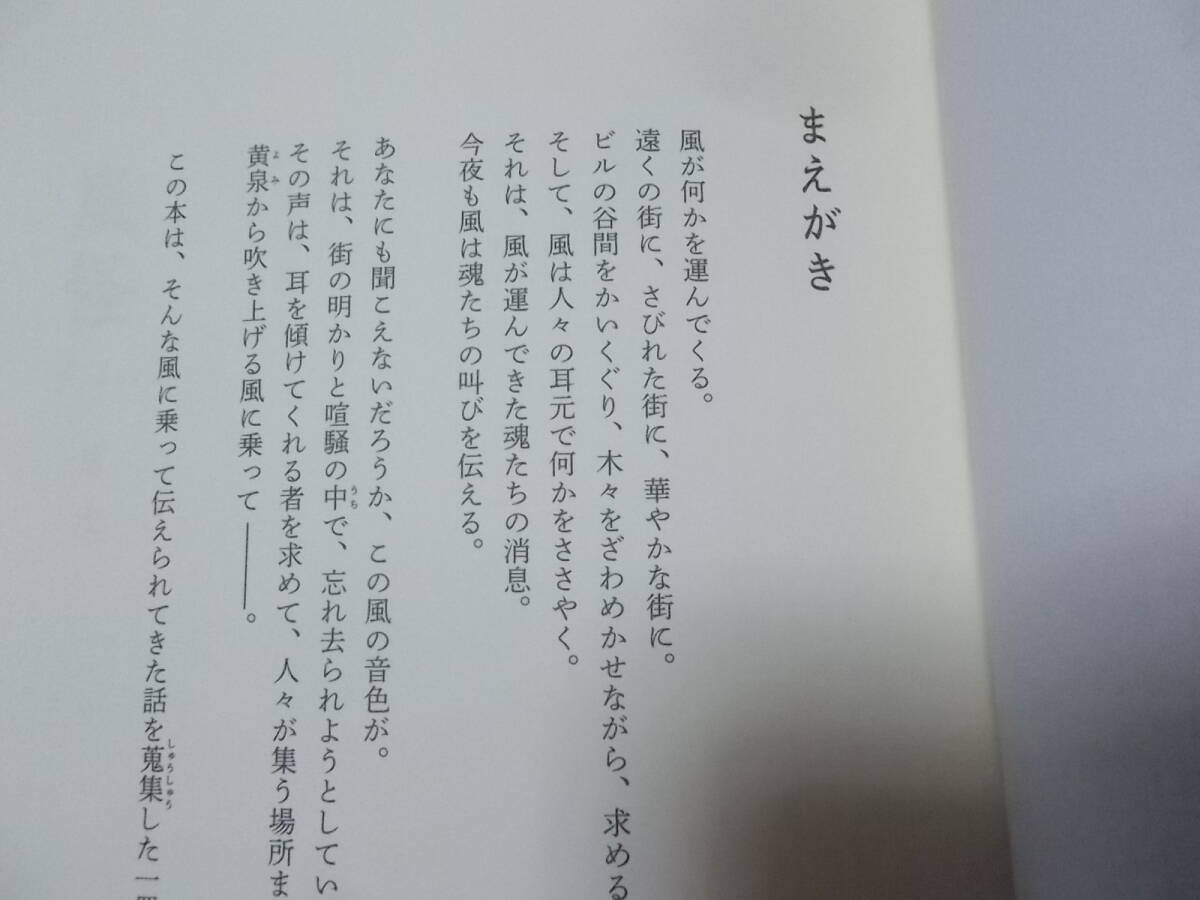 まえがき
風が何かを運んでくる。
遠くの街に、さびれた街に、華やかな街に。
ビルの谷間をかいくぐり、木々をざわめかせながら、求める
そして、風は人々の耳元で何かをささやく。
それは、風が運んできた魂たちの消息。
今夜も風は魂たちの叫びを伝える。
あなたにも聞こえないだろうか、この風の音色が。
それは、街の明かりと喧騒の中で、忘れ去られようとしてい
その声は、耳を傾けてくれる者を求めて、人々が集う場所ま
黄泉から吹き上げる風に乗って――。
この本は、そんな風に乗って伝えられてきた話を蒐集した一